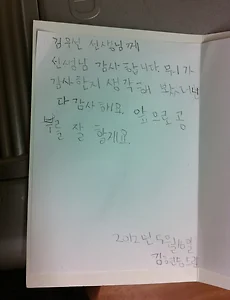 선생님께
선생님 감사합니다 뭐가
감사한지 생각해 봤더니
다 감사해요 앞으로 공
부를 잘 할게요
2012년 5월 16일